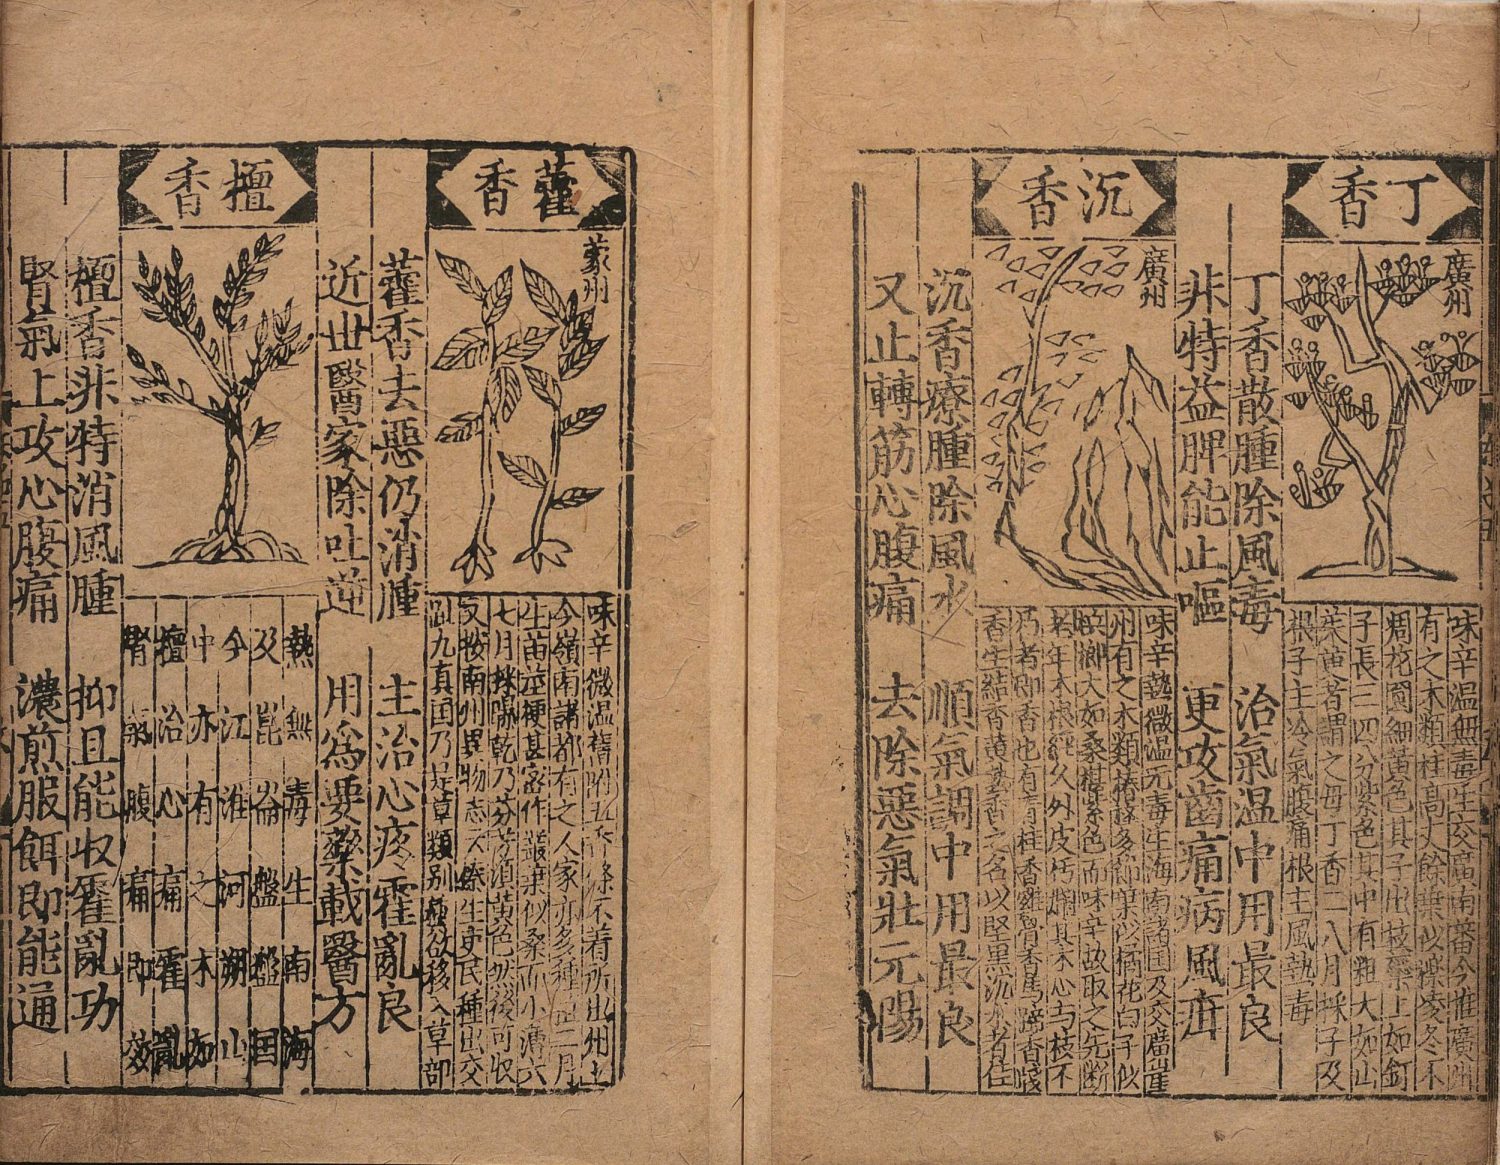 丁香
廣州
味辛温無毒生交廣南蕃今惟廣州
有之木類桂高丈餘葉似櫟凌冬不
凋花圓細黄色其子出枝蘂上如釘
子長三四分紫色其中有粗大如山
茱萸者謂之母丁香二八月採子及
根子主冷氣腹痛根主風熱毒
丁香散腫除風毒 治氣温中用最良
非特益脾能止嘔 更攻齒痛病風疳
沉香
廣州
味辛熱微温无毒生海南諸国及交廣崖
州有之木類椿櫸多節葉似橘花白子似
檳榔大如桑椹紫色而味辛故取之先断
老年木根經久外皮朽爛其木心与枝不
乃者即香也有青桂香雞骨香馬蹄香棧
香生結香黄
香之名以堅黒沉水者佳
沉香療腫除風水 順氣調中用最良
又止轉筋心腹痛 去除惡氣壯元陽
藿香
蒙州
味辛微温舊附五香條不着所出州土
今嶺南諸郡有之人家亦多種
二月
生苗莖梗甚密作叢葉似桑而小薄六
七月採
乾乃芬芳須黄色然後可収
又按南州異物志云
生吏民種出交
趾九真国乃是草類别
欲移入草部
藿香去惡仍消腫 主治心疼霍亂良
近世醫家除吐逆 用為要藥載醫方
檀香
熱無毒生南海
及崑崙盤盤国
今江淮河朔山
中亦有之木如
檀治心痛霍亂
腎氣腹痛即效
檀香非特消風腫 抑且能収霍亂功
腎氣上攻心腹痛 濃煎服餌即能通